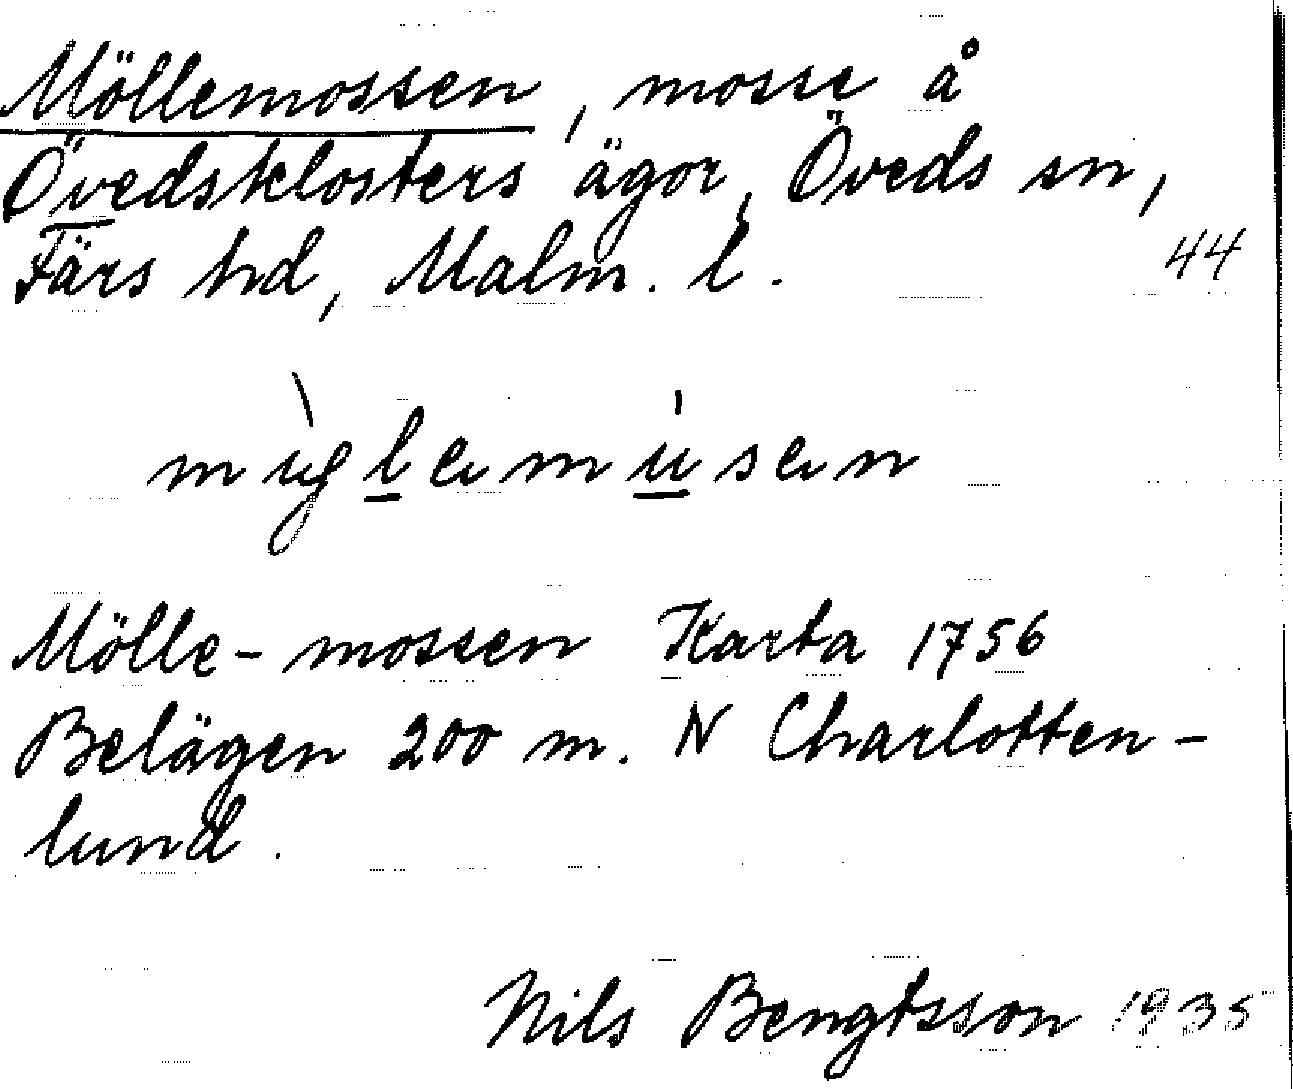 Möllemossen, mosse å
Övedsklosters ägor, Öveds sn,
Färs hd, Malm. l.
44
Mölle-mossen Karta 1756
Belägen 200 m. N Charlotten-
lund.
Nils Bengtsson 1935